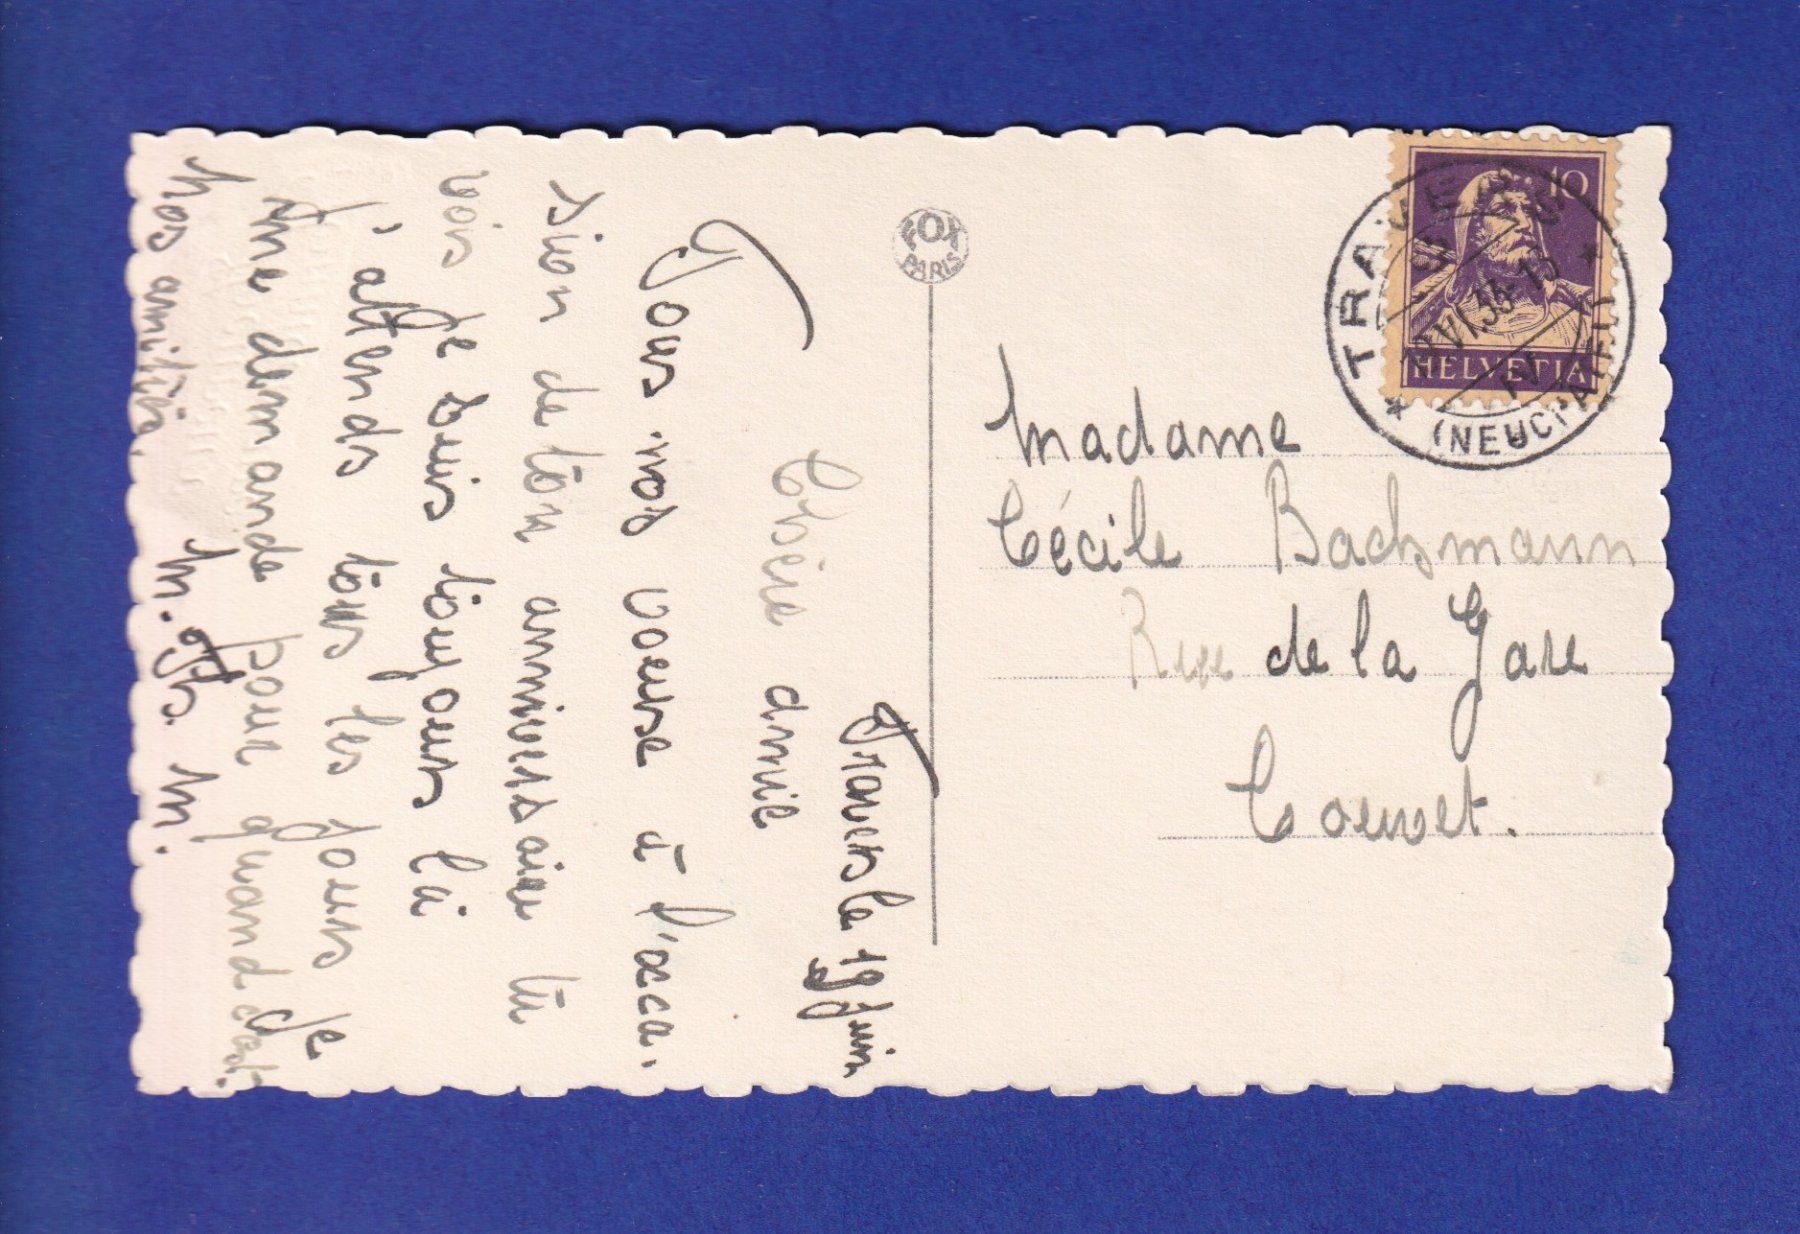 Travers le 19 Juin
Chère amie
Tous nos voeuxe à l'occa.
sion de ton anniversaire tu
vois je suis toujours là
j'attends tous les jours je
me demande pour quand
Nos amitiés. M. M.
FOX
PARIS
10
HELVETIA
TRAVERS
(NEUCHATEL)
Madame
Cécile Bachmann
Rue de la Gare
Couvet.